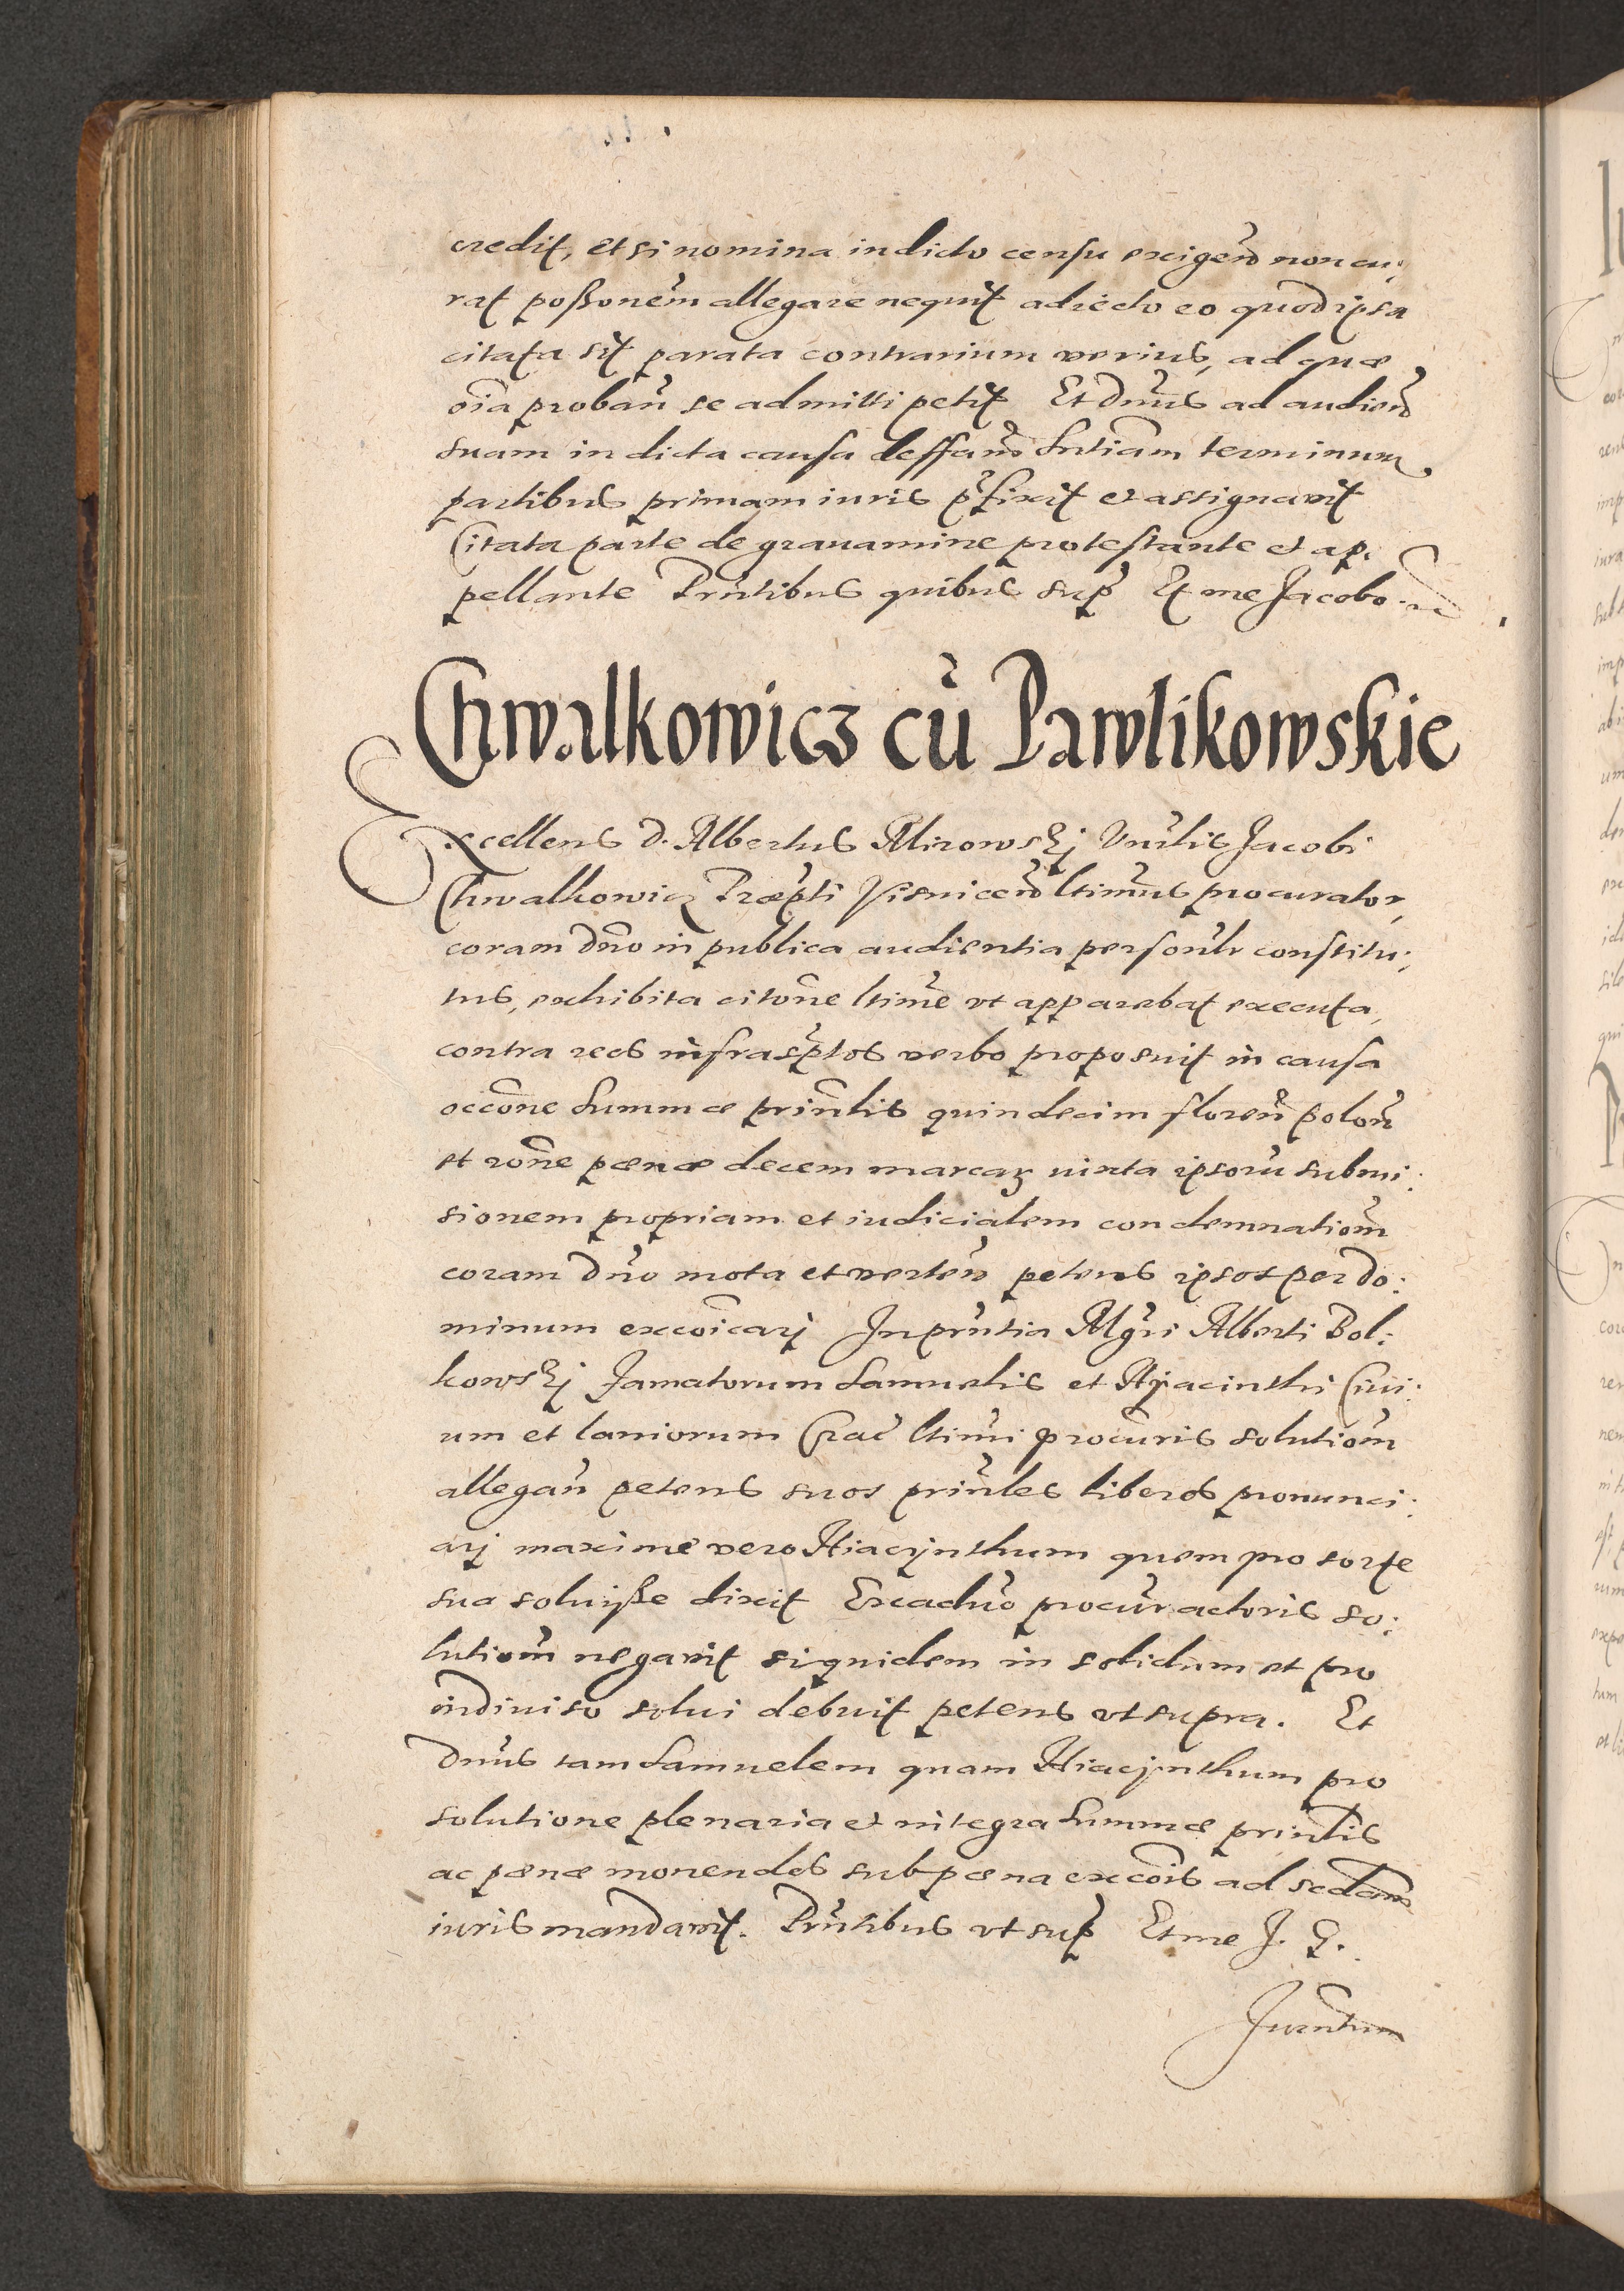 credit, et si nomina in dicto censu exigeñ non cu:
rat possonem̃ allegare nequit adiecto eo quod ipsa
citata sit parata contrarium verius, ad quæ
oĩa probañ se admitti petit Et Dnus ad audieñ
suam in dicta causa deffañ Sntiam terminum
partibus primam iuris pfixit et assignavit
Citata parte de grauamine protestante et ap:
pellante Prntibus quibus sup Et me Jacobo
Chwalkowicz cũ Pawlikowskie
Excellens D. Albertus Mirowskj Vnrlis Jacobi
Chwalkowicz Præpti Visniceñ ltimus procurator,
coram dno in publica audientia personlr constitu:
tus, exhibita citone ltime vt apparebat executa,
contra reos infrascptos verbo proposuit in causa
occone Summæ prinlis quindecim floreñ poloñ
et rone pœnæ decem marcaȝ iuxta ipsorũ submi:
sionem propriam et iudicialem condemnationẽ
coram dno mota et verteñ petens ipsos per do:
minum excoicarj In prntia Mgri Alberti Bol:
kowskj famatorum Samuelis et Hyacinthi Ciui:
um et laniorum Crac ltimi procuris solutionẽ
allegañ petens suos prinles liberos pronunci:
arj maxime vero Hiacynthum quem pro sorte
sua soluisse dixit Ex aduo procur actoris so:
lutionẽ negavit siquidem in solidum et pro
indiuiso solui debuit petens vt supra. Et
Dnus tam Samuelem quam Hiacynthum pro
solutione plenaria et integra Summæ prinlis
ac pœnæ monendos sub pœna excois ad sedam
iuris mandavit. Prntibus vt sup Et me J. Q.